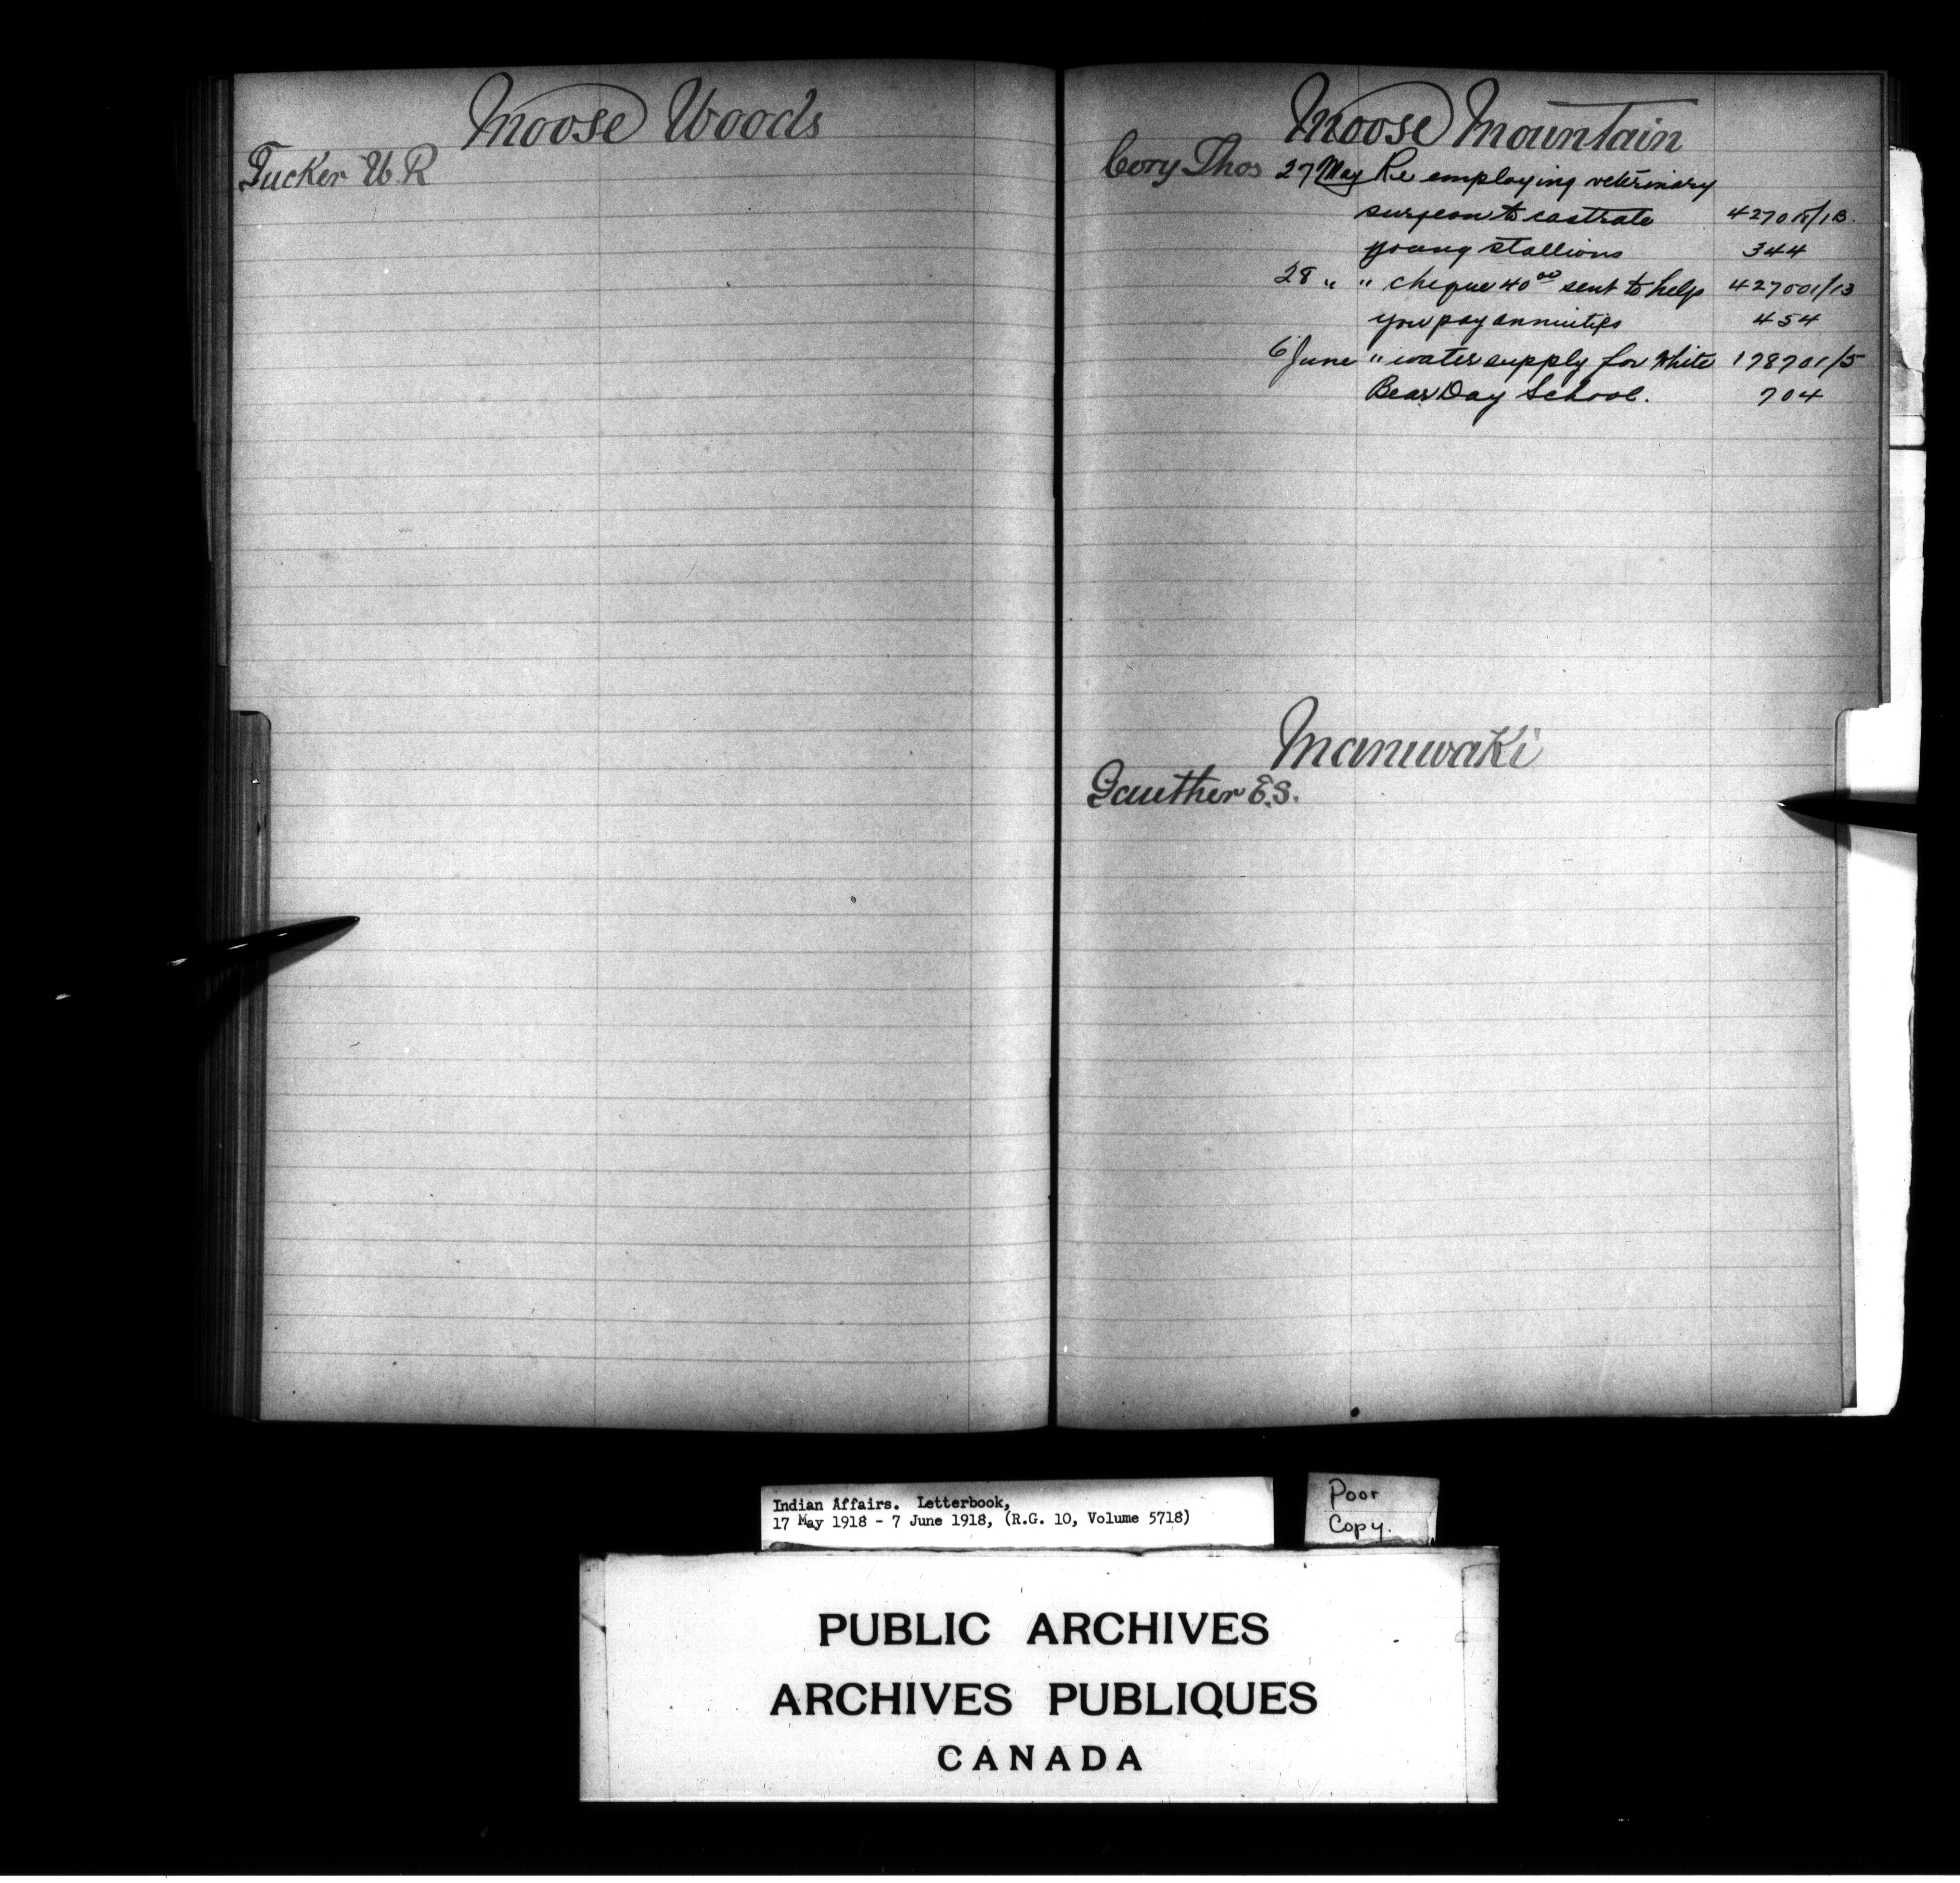 Moose Woods
Tucker W R
Moose Mountain
Cory Thos 27 May Re employing veterinary
surgeon to castrate 427018/13.
young stallions 344
28 " " cheque 40 00 sent to help 427001/13
you pay annuities 454
6 June " water supply for White 178701/5
Bear Day School. 704
Maniwaki
Gauthier E.S.
Indian Affairs. Letterbook,
17 May 1918 - 7 June 1918, (R.G. 10, Volume 5718)
Poor
Copy.
PUBLIC ARCHIVES
ARCHIVES PUBLIQUES
CANADA